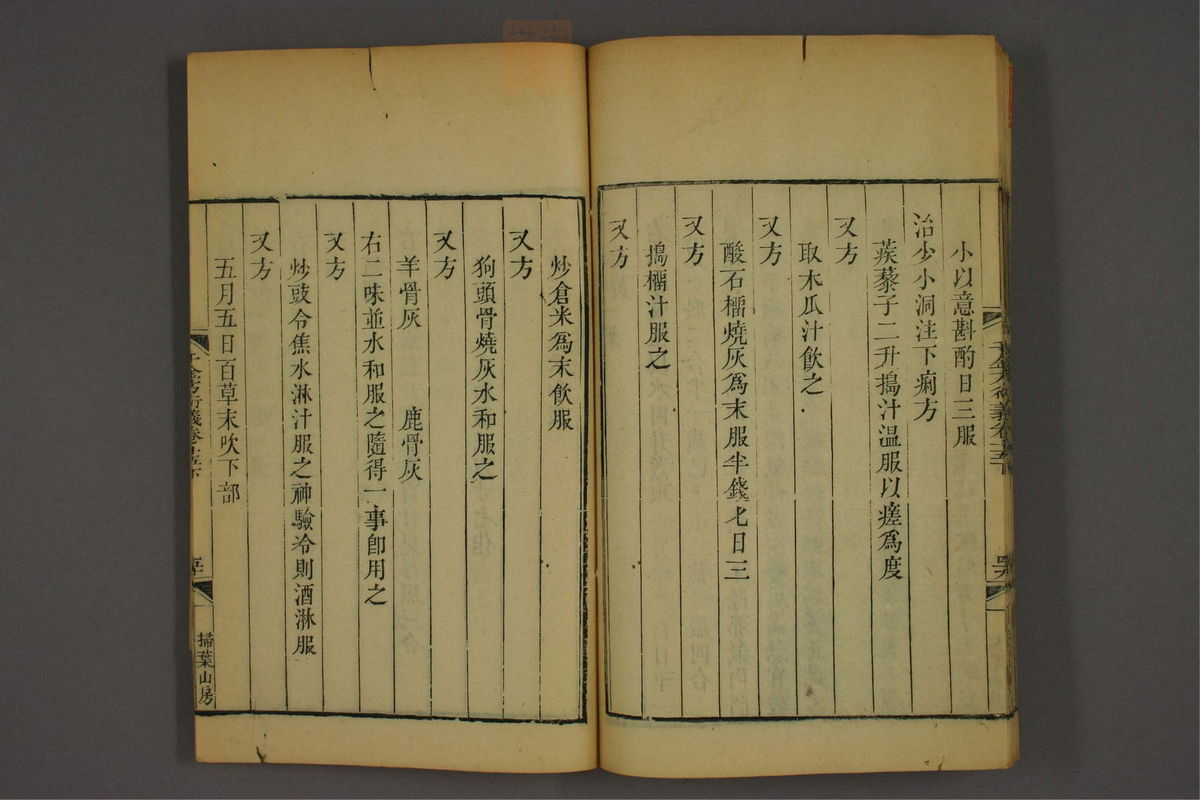 小以意斟酌日三服
治少小洞注下痢方
蒺藜子二升搗汁温服以瘥為度
又方
取木瓜汁飲之
又方
酸石榴燒灰為末服半錢匕日三
又方
搗榴汁服之
又方
炒倉米為末飲服
又方
狗頭骨燒灰水和服之
又方
羊骨灰　鹿骨灰
右二味並水和服之隨得一事即用之
又方
炒豉令焦水淋汁服之神驗冷則酒淋服
又方
五月五日百草末吹下部
千金方衍義卷十五下
掃葉山房